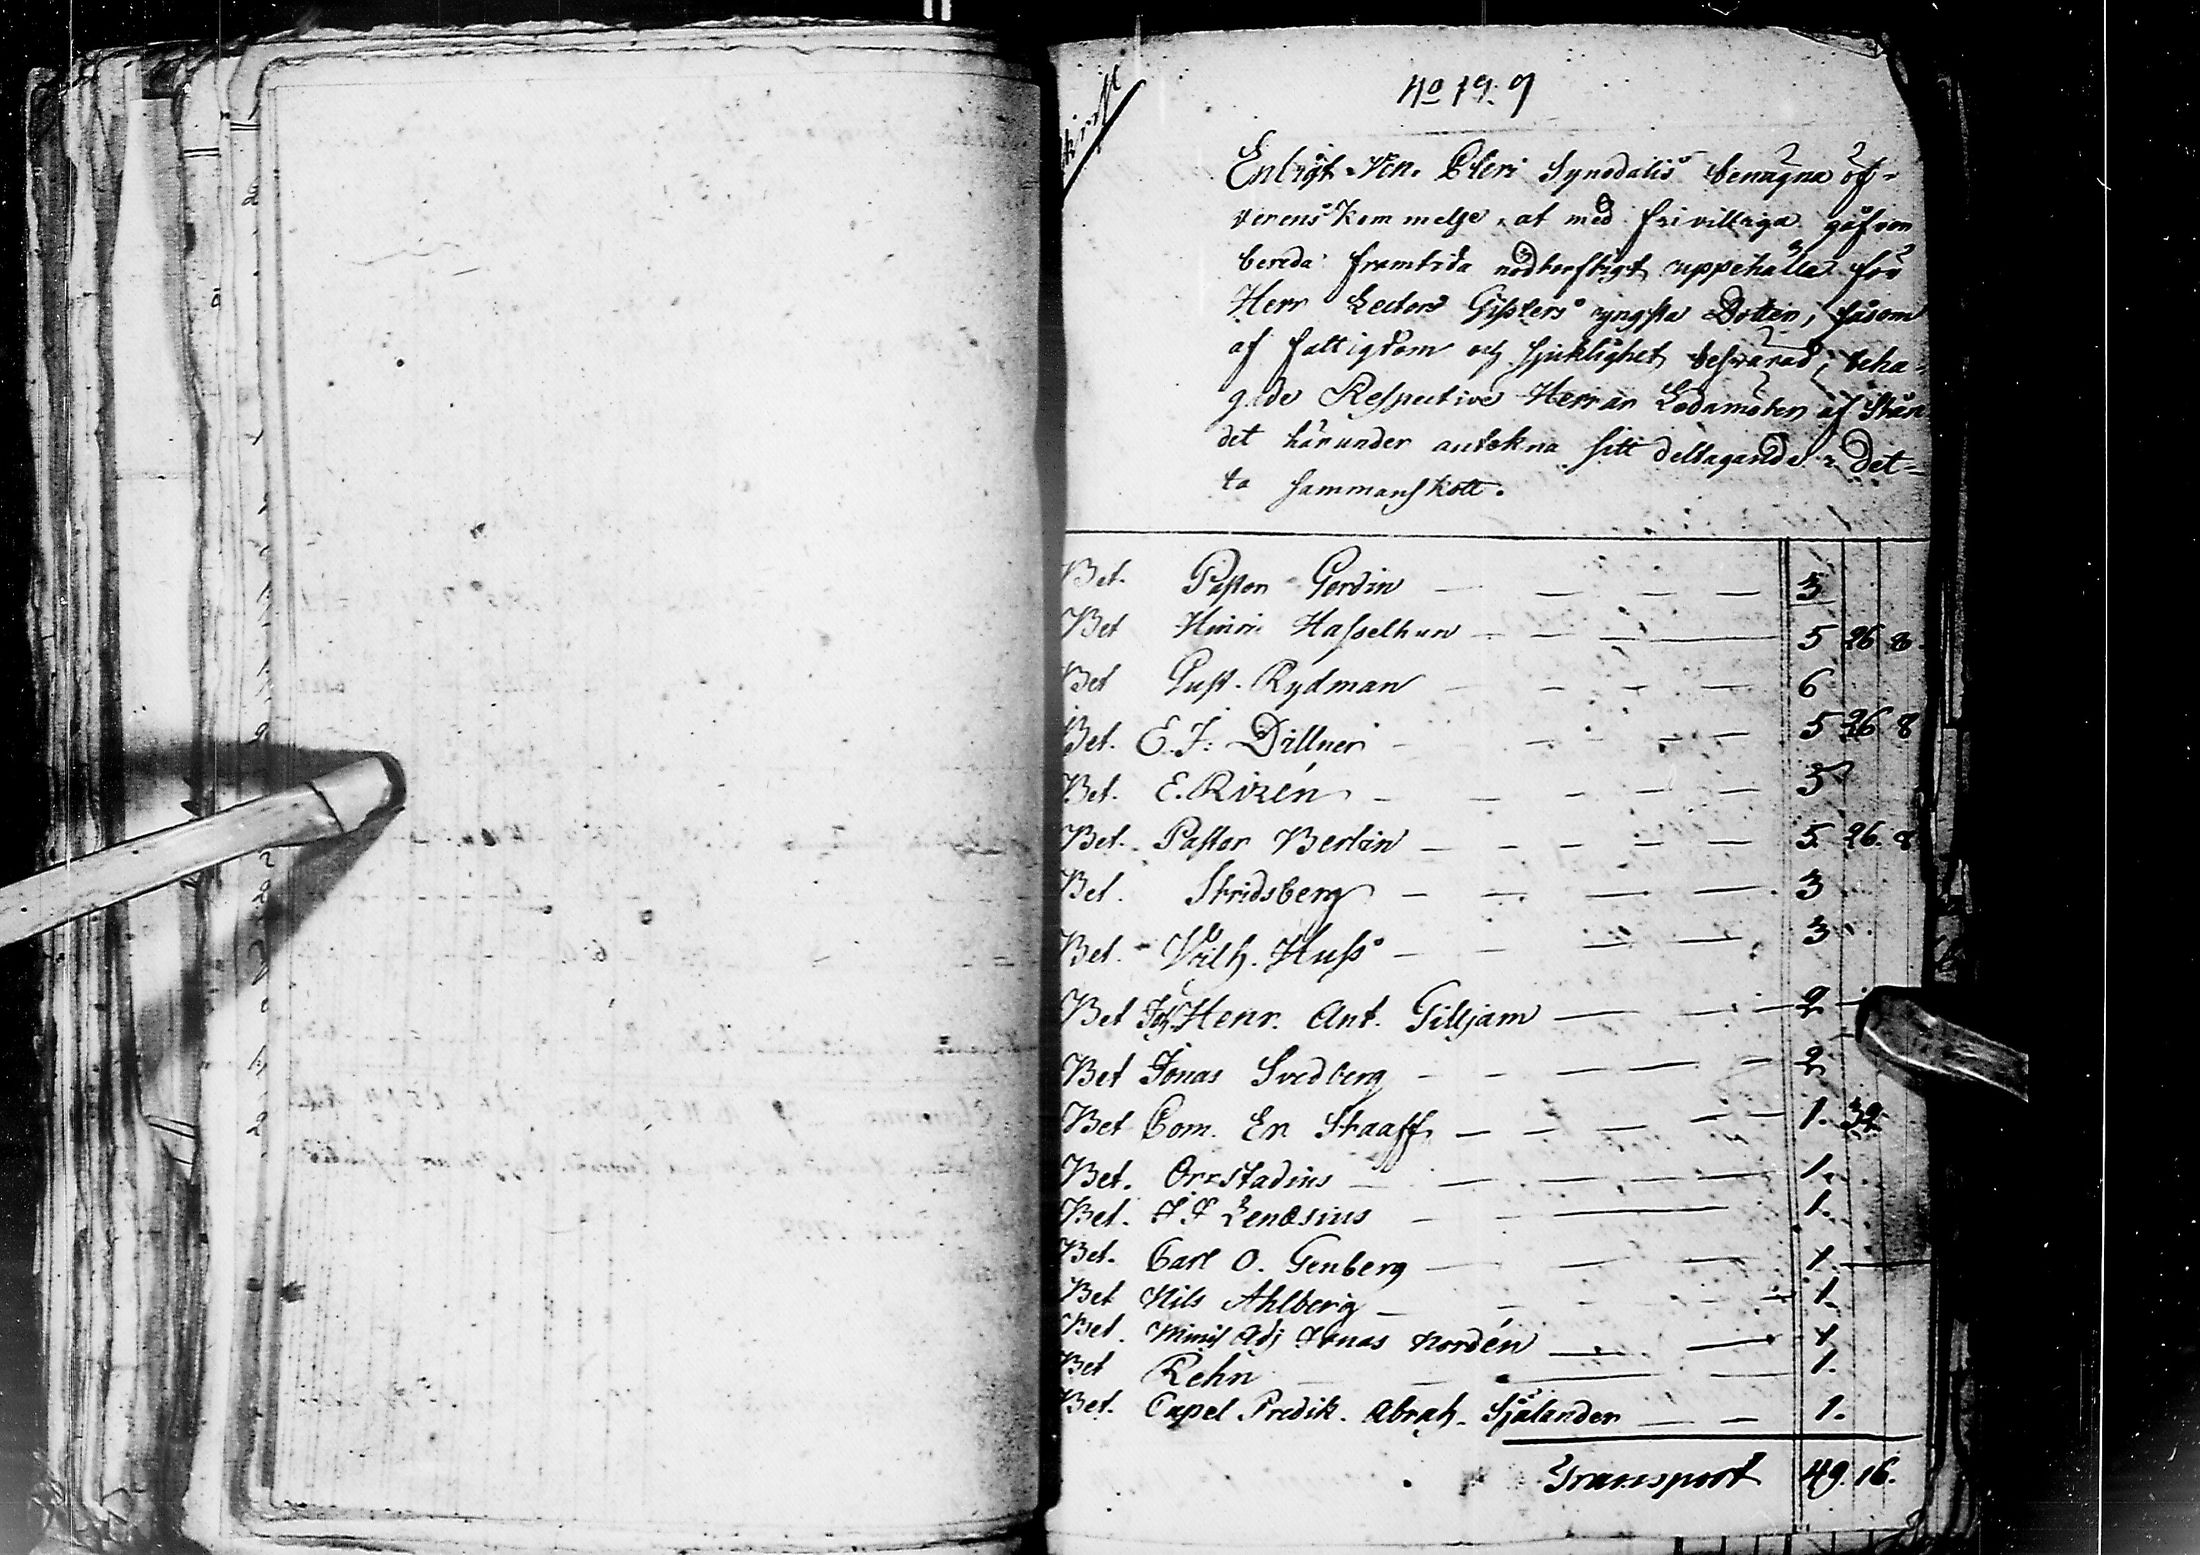 No 19. 9
Enligt Ven. Cleri Synodalis benägna öf-
verens kommelse, at med frivilliga gåfvor
bereda framtida nödtorftigt uppehälle för
Herr Lectors Gisslers yngsta Dotter, såsom
af fattigdom och sjuklighet besvärad, beha-
gade Respective Herrar Ledamöter af Stån
det härunder antekna sitt deltagande i det-
ta sammanskott.
Bet. Pastor Gerdin — 3
Bet Henric Hasselhun — 5 26 8.
Bet Gust. Rydman — 6
Bet. E. J. Dillner — 5 26 8
Bet. E. Rizén — 3
Bet. Pastor Berlin — 5. 26. 8
Bet. Stridsberg — 3
Bet. Vilh. Huss — 3
Bet Joh Henr. Ant. Gilljam — 2
Bet Jonas Svedberg — 2
Bet Com. Er Staaff — 1. 32
Bet. Orstadius — 1.
Bet. Lenæsius — 1.
Bet. Carl O. Genberg — 1
Bet Nils Ahlberg — 1.
Bet. Minis Adj Jonas Nordén — 1
Bet Rehn — 1.
Bet. Capel Predik. Abrah. Själander — 1.
Transport 49. 16.